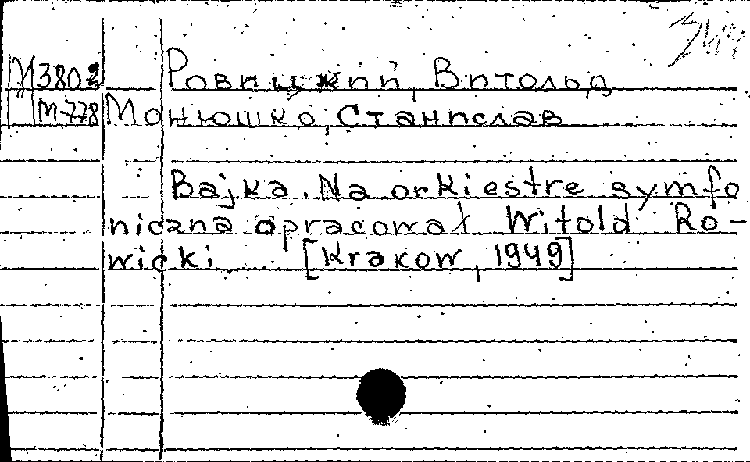 М3802 Ровицкий, Витольд
М-778 Монюшко, Станислав
Bajka. Na orkiestre symfo
niczna opracował Witold Ro-
wicki [Krakow, 1949]